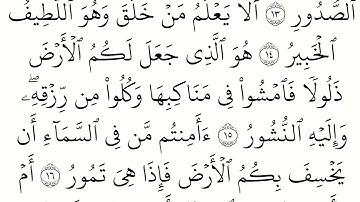 ٱلصُّدُورِ ١٣ أَلَا يَعْلَمُ مَنْ خَلَقَ وَهُوَ ٱللَّطِيفُ
ٱلْخَبِيرُ ١٤ هُوَ ٱلَّذِى جَعَلَ لَكُمُ ٱلْأَرْضَ
ذَلُولًا فَٱمْشُوا۟ فِى مَنَاكِبِهَا وَكُلُوا۟ مِن رِّزْقِهِۦ ۖ
وَإِلَيْهِ ٱلنُّشُورُ ١٥ ءَأَمِنتُم مَّن فِى ٱلسَّمَآءِ أَن
يَخْسِفَ بِكُمُ ٱلْأَرْضَ فَإِذَا هِىَ تَمُورُ ١٦ أَمْ